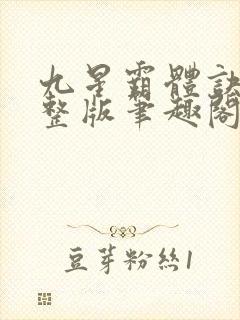 九星霸體訣
整版筆趣閣
豆芽粉絲1